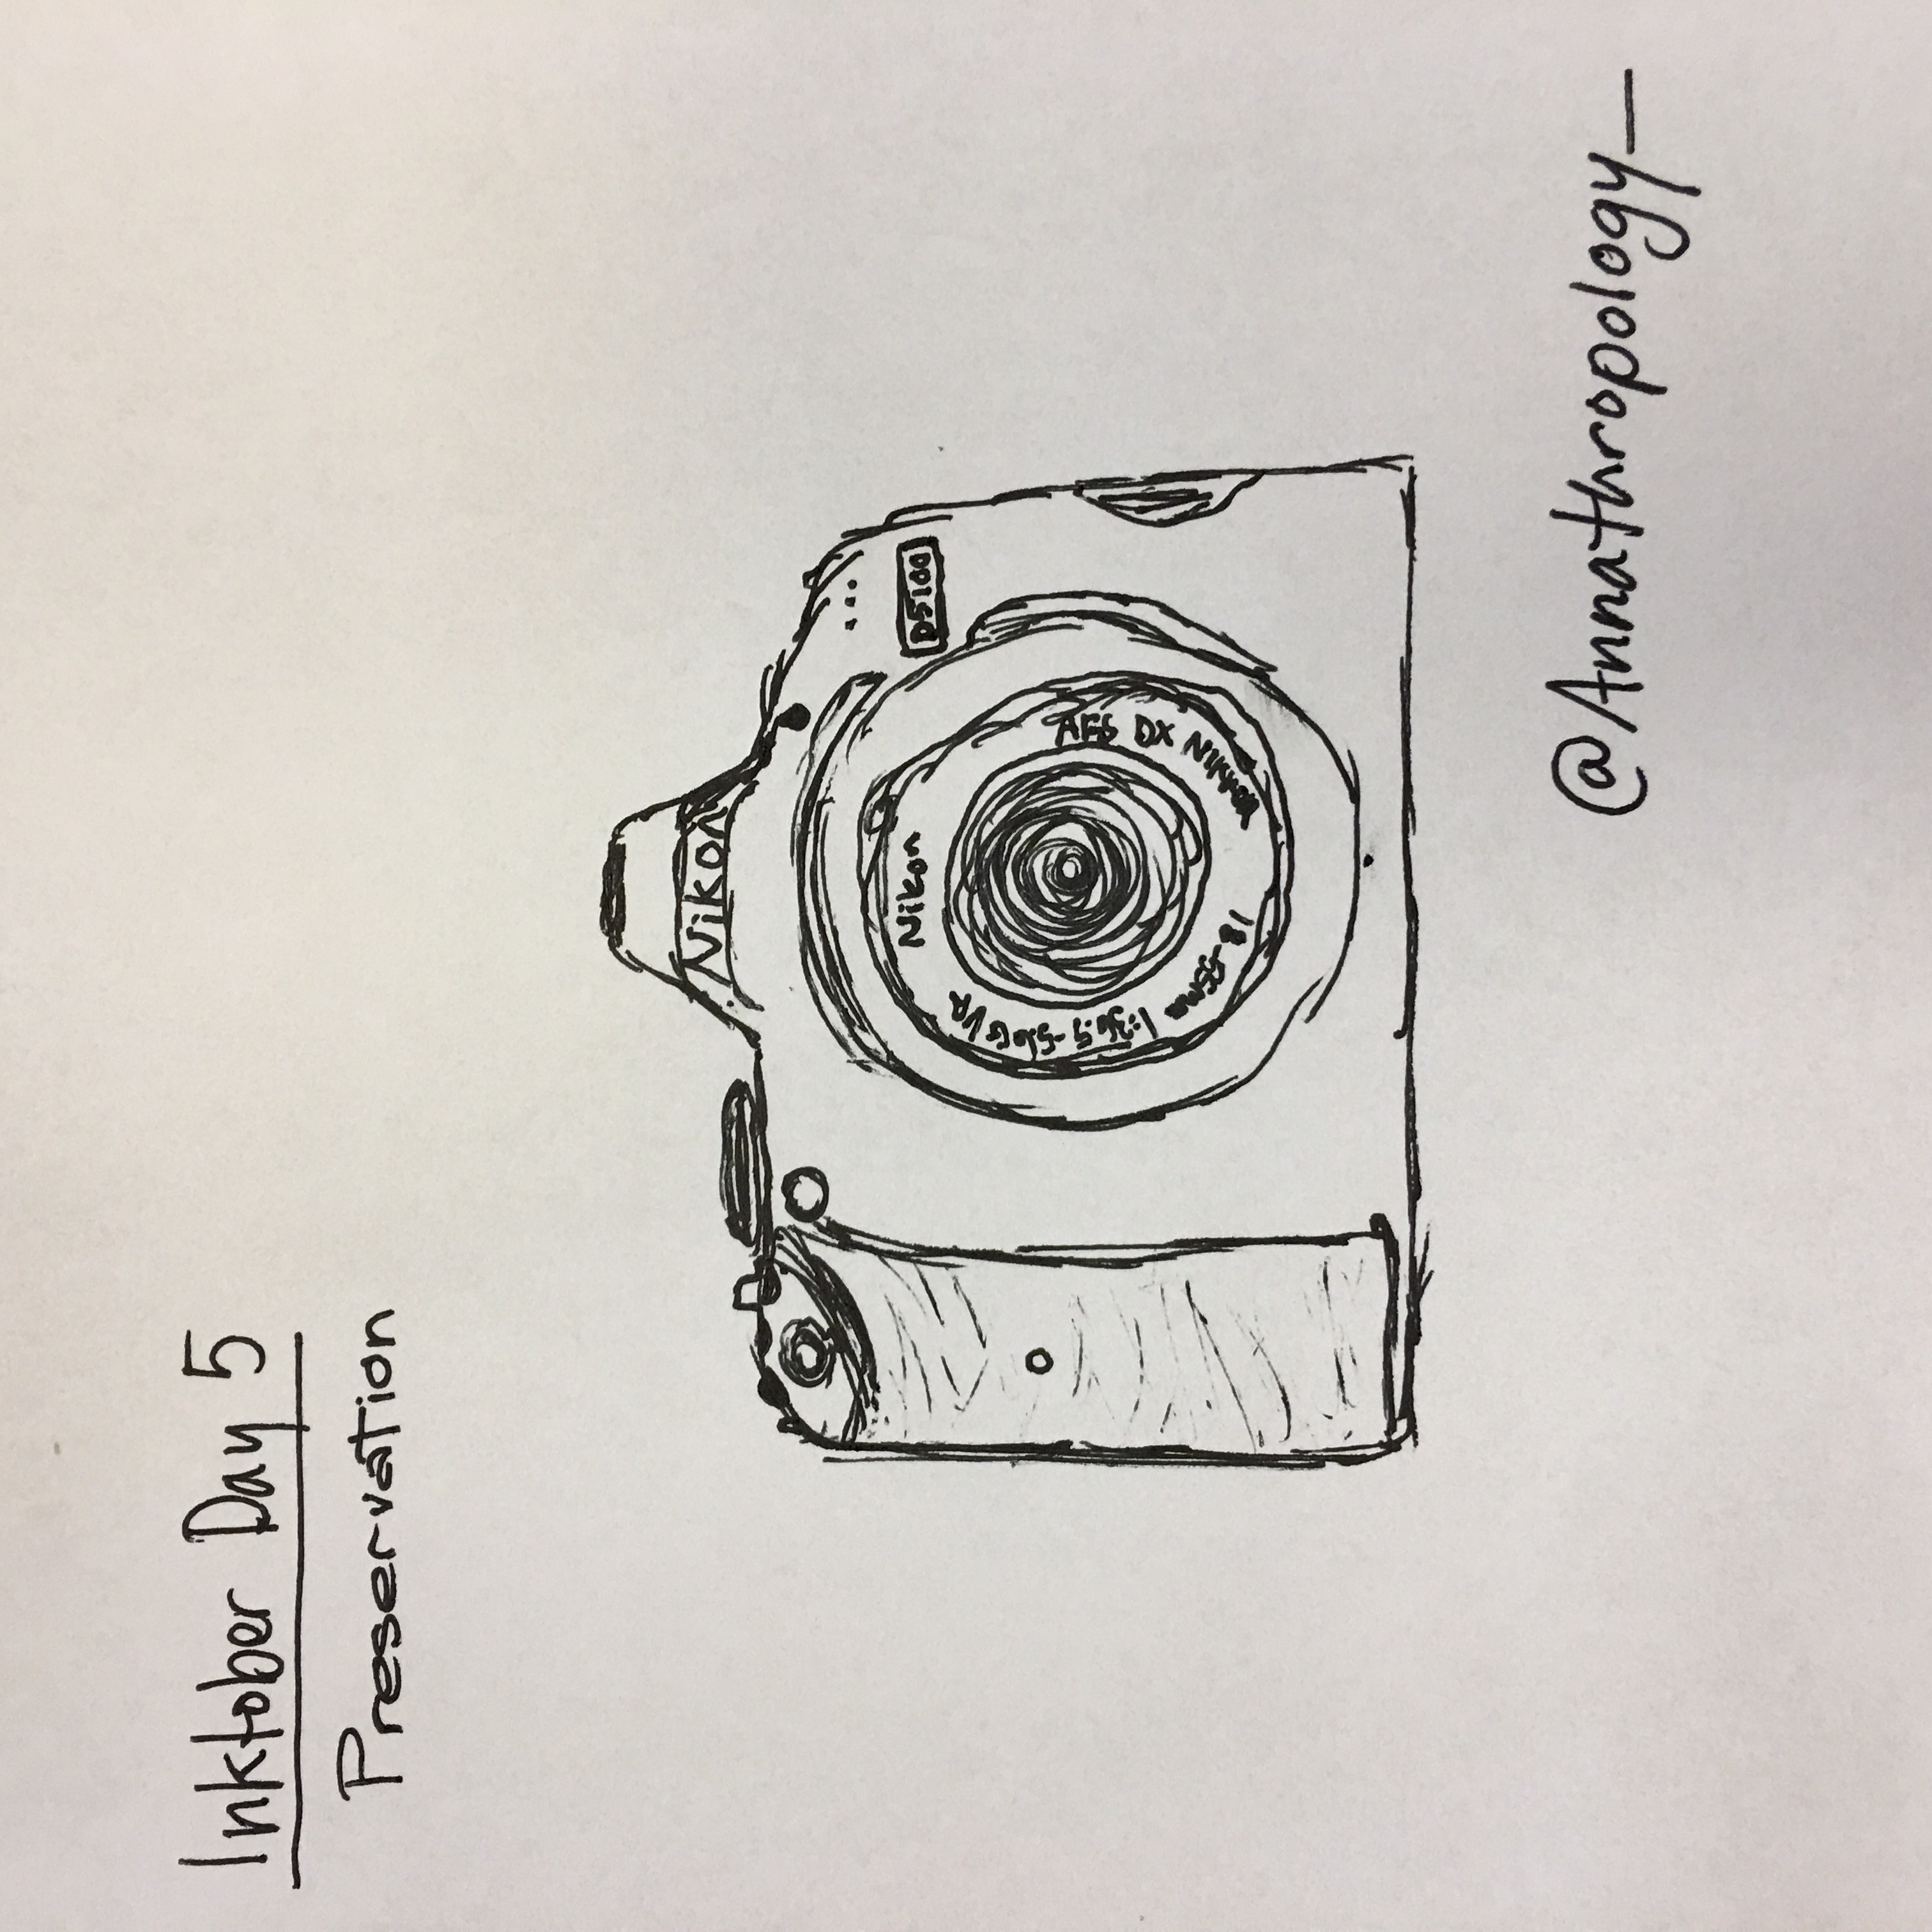 Inktober Day 5
Preservation
Nikon
Nikon
D5100
VR
AFS DX NIKKOR
18-55mm
@Annathropology_